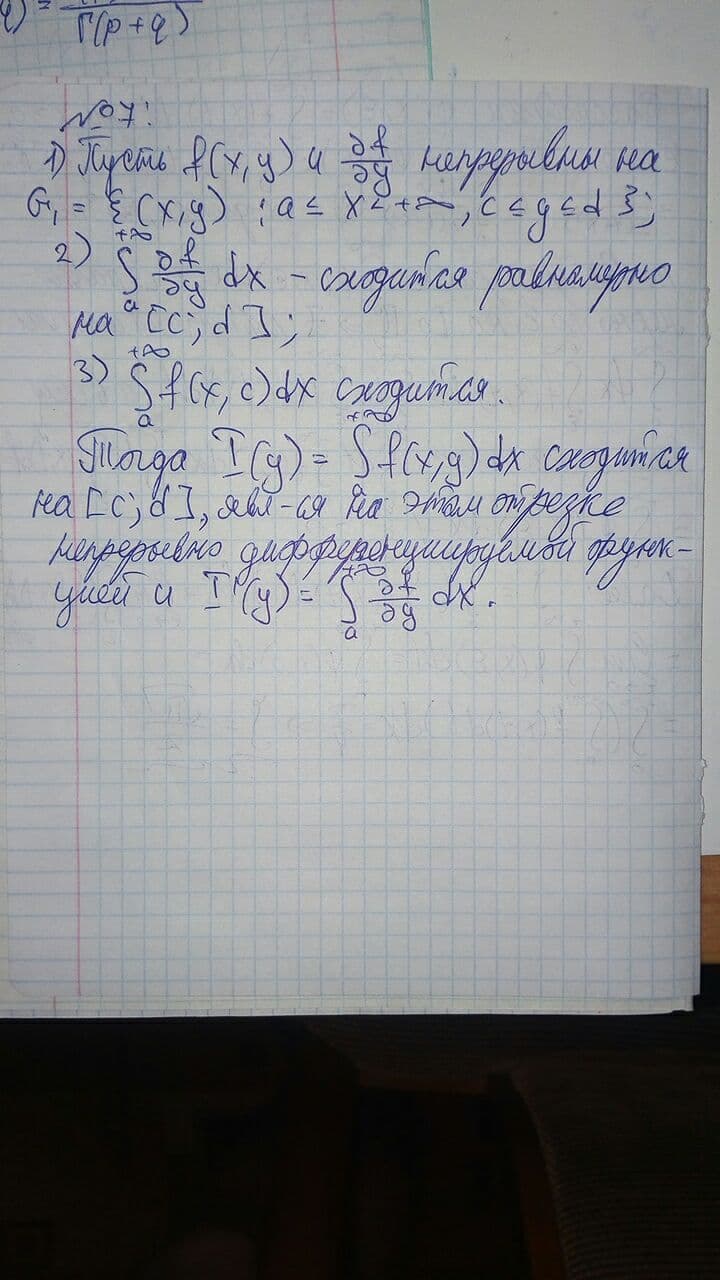 q) =
Γ(p+q)
№7:
1) Пусть f(x,y) и ∂f/∂y непрерывны на
G₁ = {(x,y) : a ≤ x < +∞, c ≤ y ≤ d};
2) ∫ₐ^{+∞} ∂f/∂y dx - сходится равномерно
на [c; d];
3) ∫ₐ^{+∞} f(x,c)dx сходится.
Тогда I(y) = ∫ₐ^{+∞} f(x,y)dx сходится
на [c; d], явл-ся на этом отрезке
непрерывно дифференцируемой функ-
цией и I'(y) = ∫ₐ^{+∞} ∂f/∂y dx.